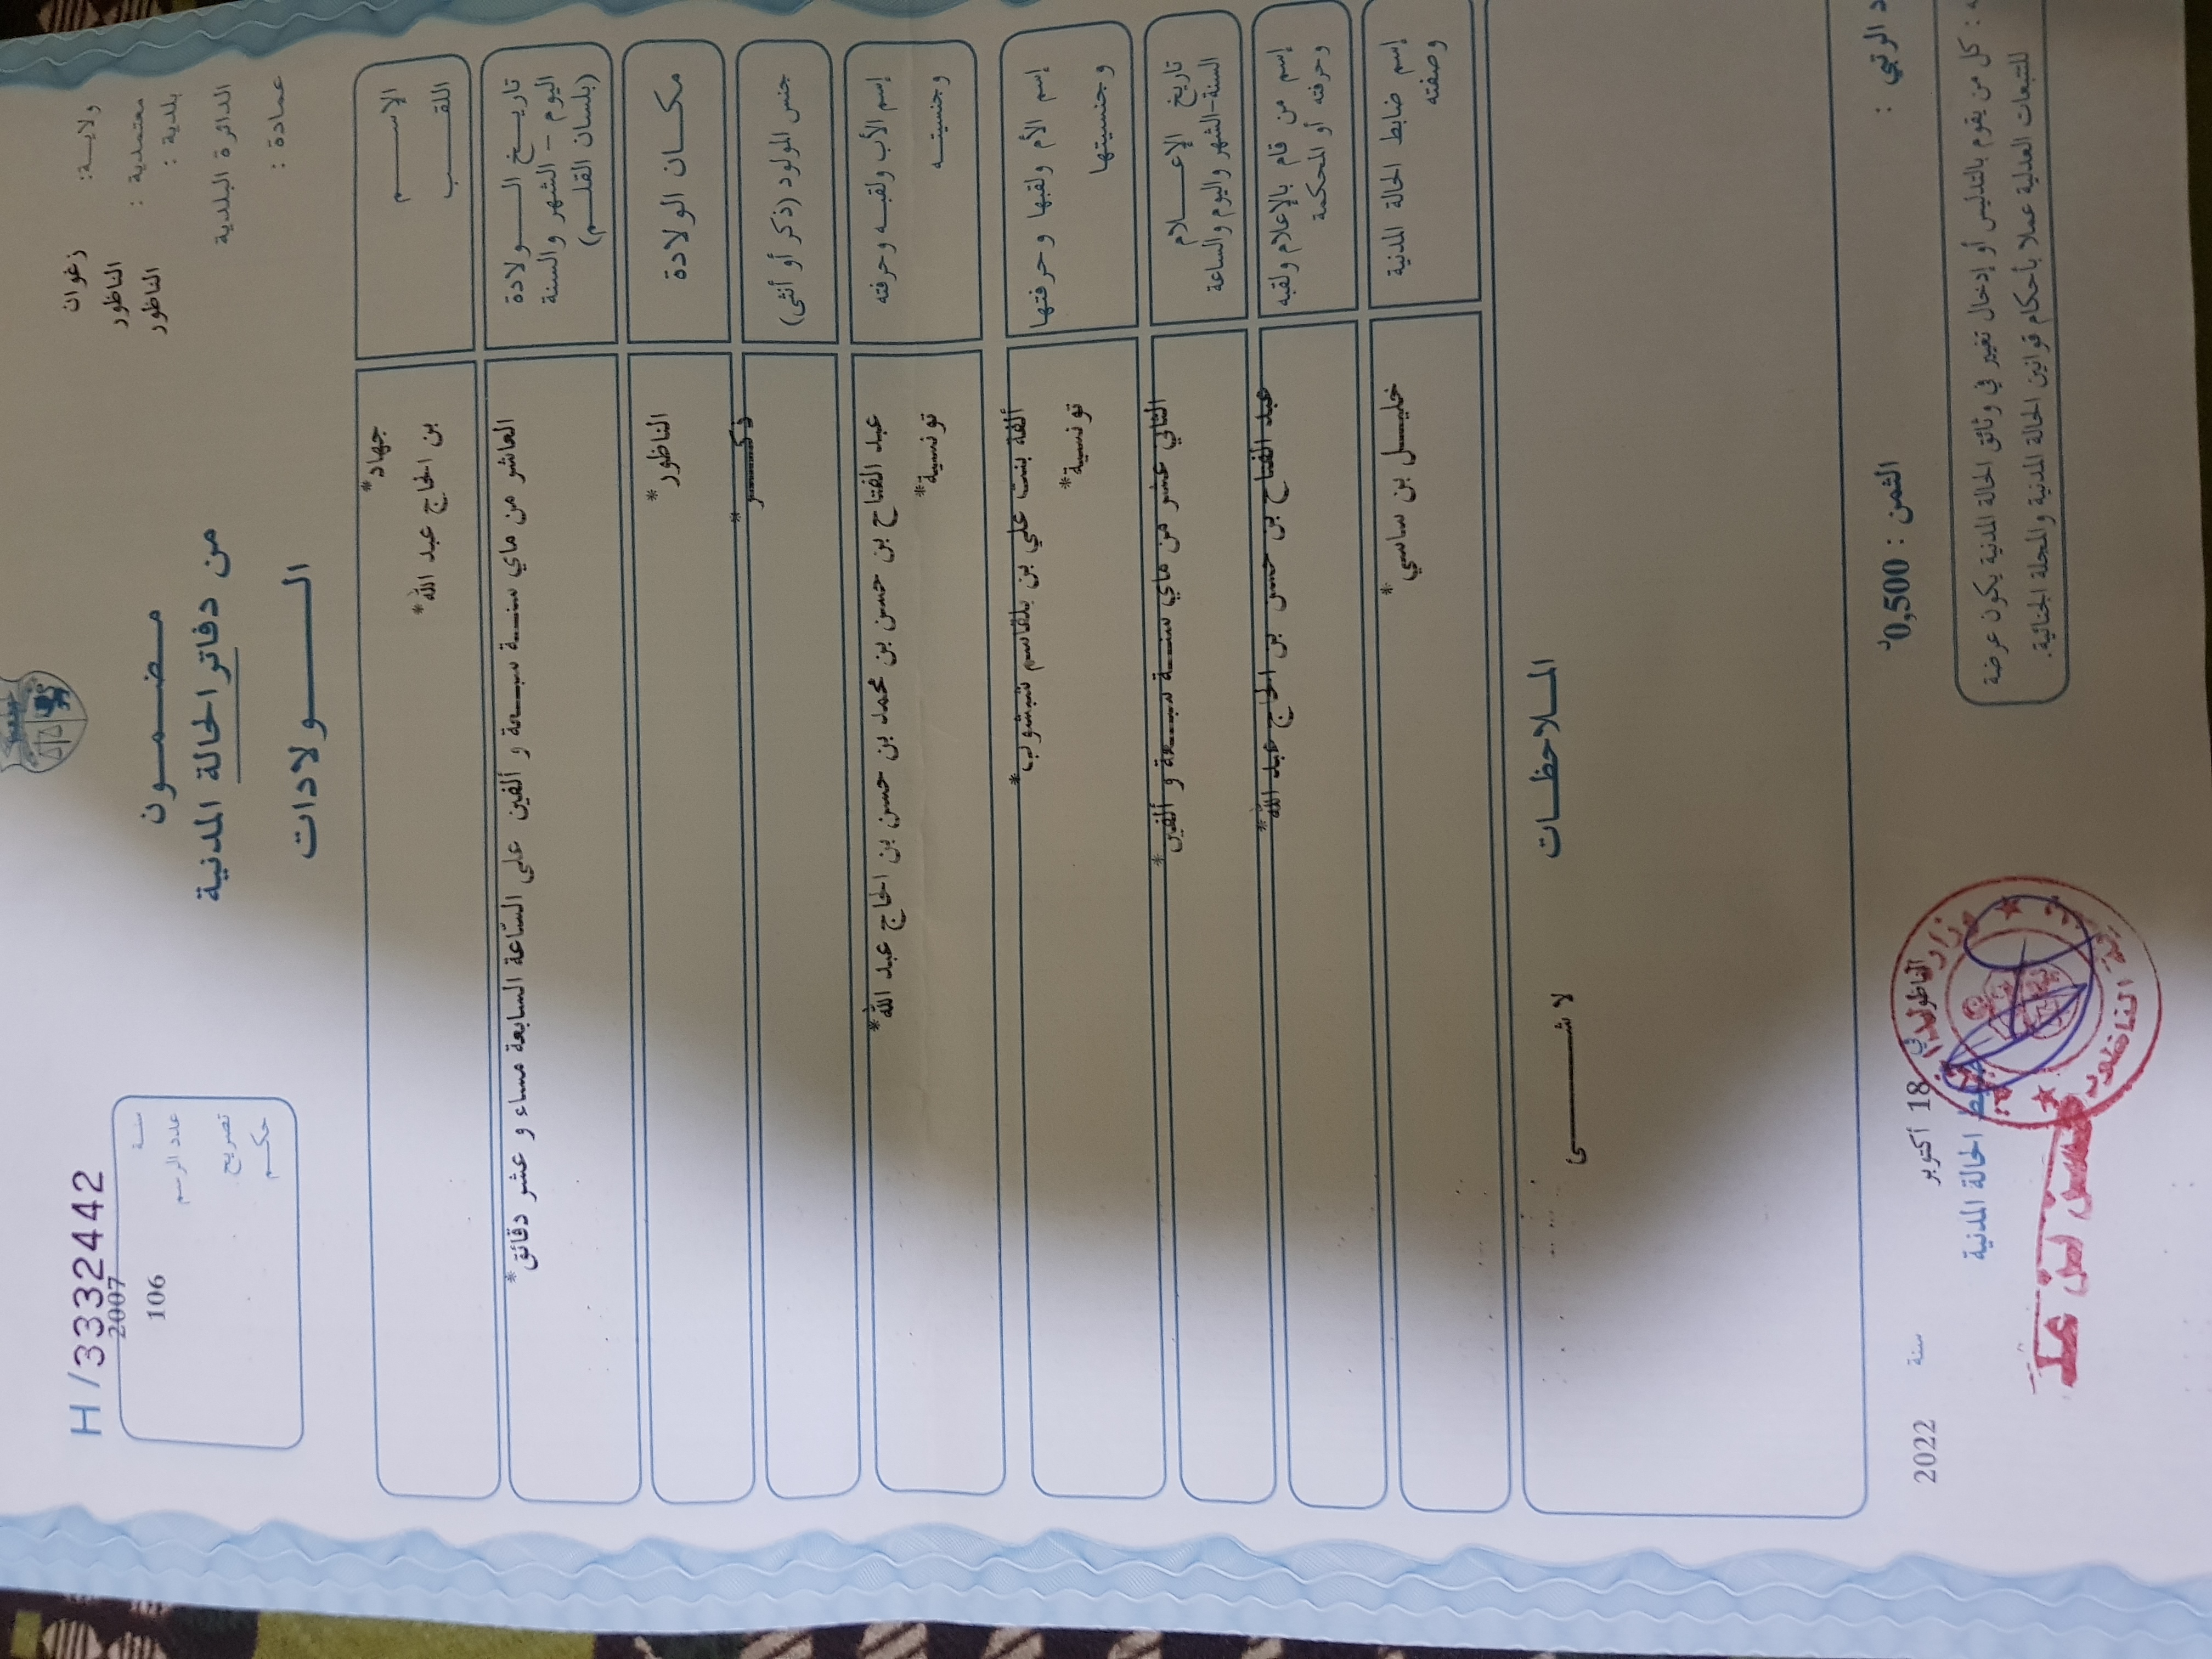 H/3332442
ولاية: زغوان
معتمدية : الناظور
بلدية : الناظور
الدائرة البلدية
عمادة :
مضمون
من دفاتر الحالة المدنية
الولادات
سنة 2007
عدد الرسم 106
تصريح
حكم
الاسم جهاد*
اللقب بن الحاج عبد الله*
تاريخ الولادة
اليوم - الشهر والسنة
(بلسان القلم)
العاشر من ماي سنة سبعة و ألفين على الساعة السابعة مساء و عشر دقائق*
مكان الولادة الناظور*
جنس المولود (ذكر أو أنثى) ذكر*
إسم الأب ولقبه وحرفته عبد الفتاح بن حسن بن محمد بن حسن بن الحاج عبد الله*
وجنسيته تونسية*
إسم الأم ولقبها وحرفتها ألفة بنت علي بن بلقاسم شبشوب*
وجنسيتها تونسية*
تاريخ الإعلام
السنة-الشهر واليوم والساعة
الثاني عشر من ماي سنة سبعة و ألفين*
إسم من قام بالإعلام ولقبه
وحرفته أو المحكمة
عبد الفتاح بن حسن بن الحاج عبد الله*
إسم ضابط الحالة المدنية
وصفته
خليل بن ساسي*
الملاحظات
لا شيء
الناظور في 18 أكتوبر سنة 2022
الحالة المدنية
الثمن : 0,500د
: كل من يقوم بالتدليس أو إدخال تغيير في وثائق الحالة المدنية يكون عرضة
للتتبعات العدلية عملا بأحكام قوانين الحالة المدنية والمجلة الجنائية.